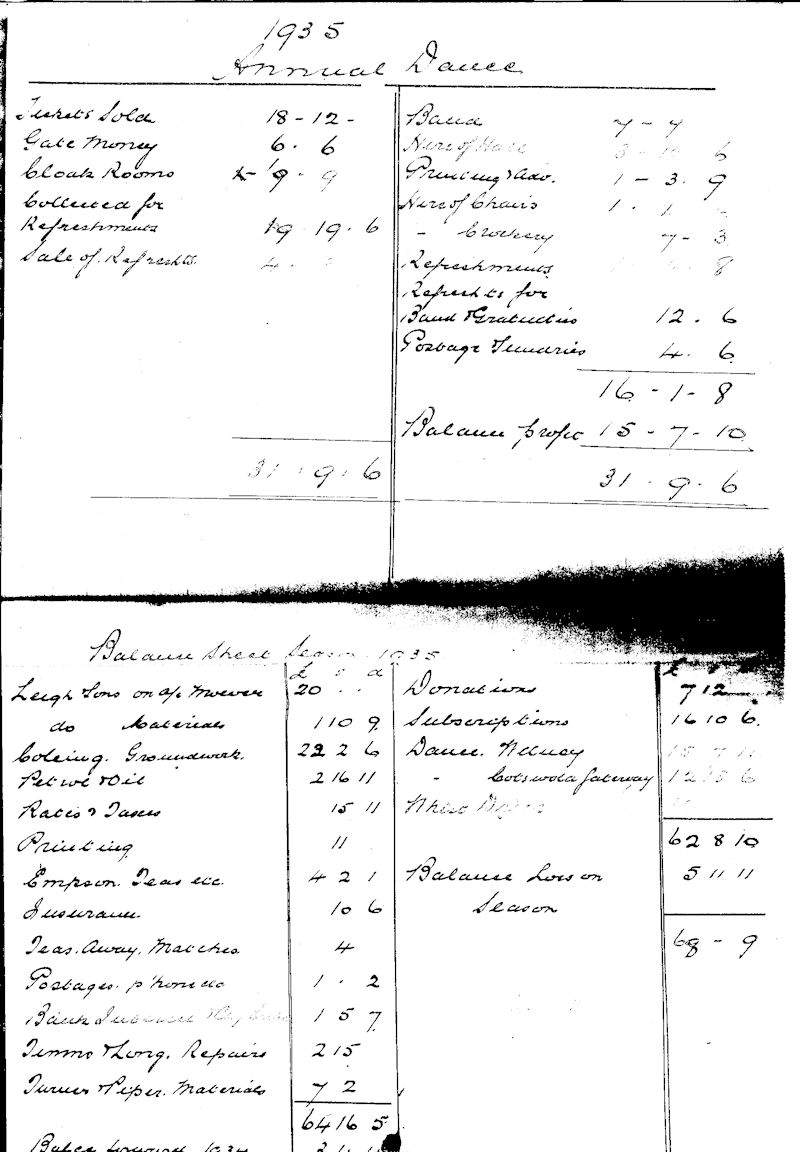 1935
Annual Dance
Tickets Sold 18-12-
Gate Money 6. 6
Cloak Rooms 1-9. 9
Collected for
Refreshments 19. 6
Sale of Refreshts. 4.
31. 9. 6
Band 7-7
Hire of Hall 3- 6
Printing & Adv. 1-3. 9
Hire of Chairs 1. 1.
" Crockery 7- 3
Refreshments 8
Refreshts for
Band & Gratuities 12. 6
Postage & Sundries 4. 6
16-1-8
Balance profit 15-7-10
31. 9. 6
Balance Sheet Season 1935
£ s d
Leigh Sons on a/c Mower 20 . .
do Materials 1 10 9
Coleing. Groundwork. 22 2 6
Petrol & Oil 2 16 11
Rates & Taxes 15 11
Printing 11
Empson. Teas etc. 4 2 1
Insurance 10 6
Teas. Away. Matches 4
Postages. phone etc 1 . 2
Bank Interest 1 5 7
Timms & Long. Repairs 2 15
Turner & Piper. Materials 7 2
64 16 5
Balce forward 1934 3
£
Donations 7 12
Subscriptions 16 10 6.
Dance. Witney 15 7 10
" Cotswold Gateway 12 6
Whist
62 8 10
Balance Loss on 5 11 11
Season
68 - 9